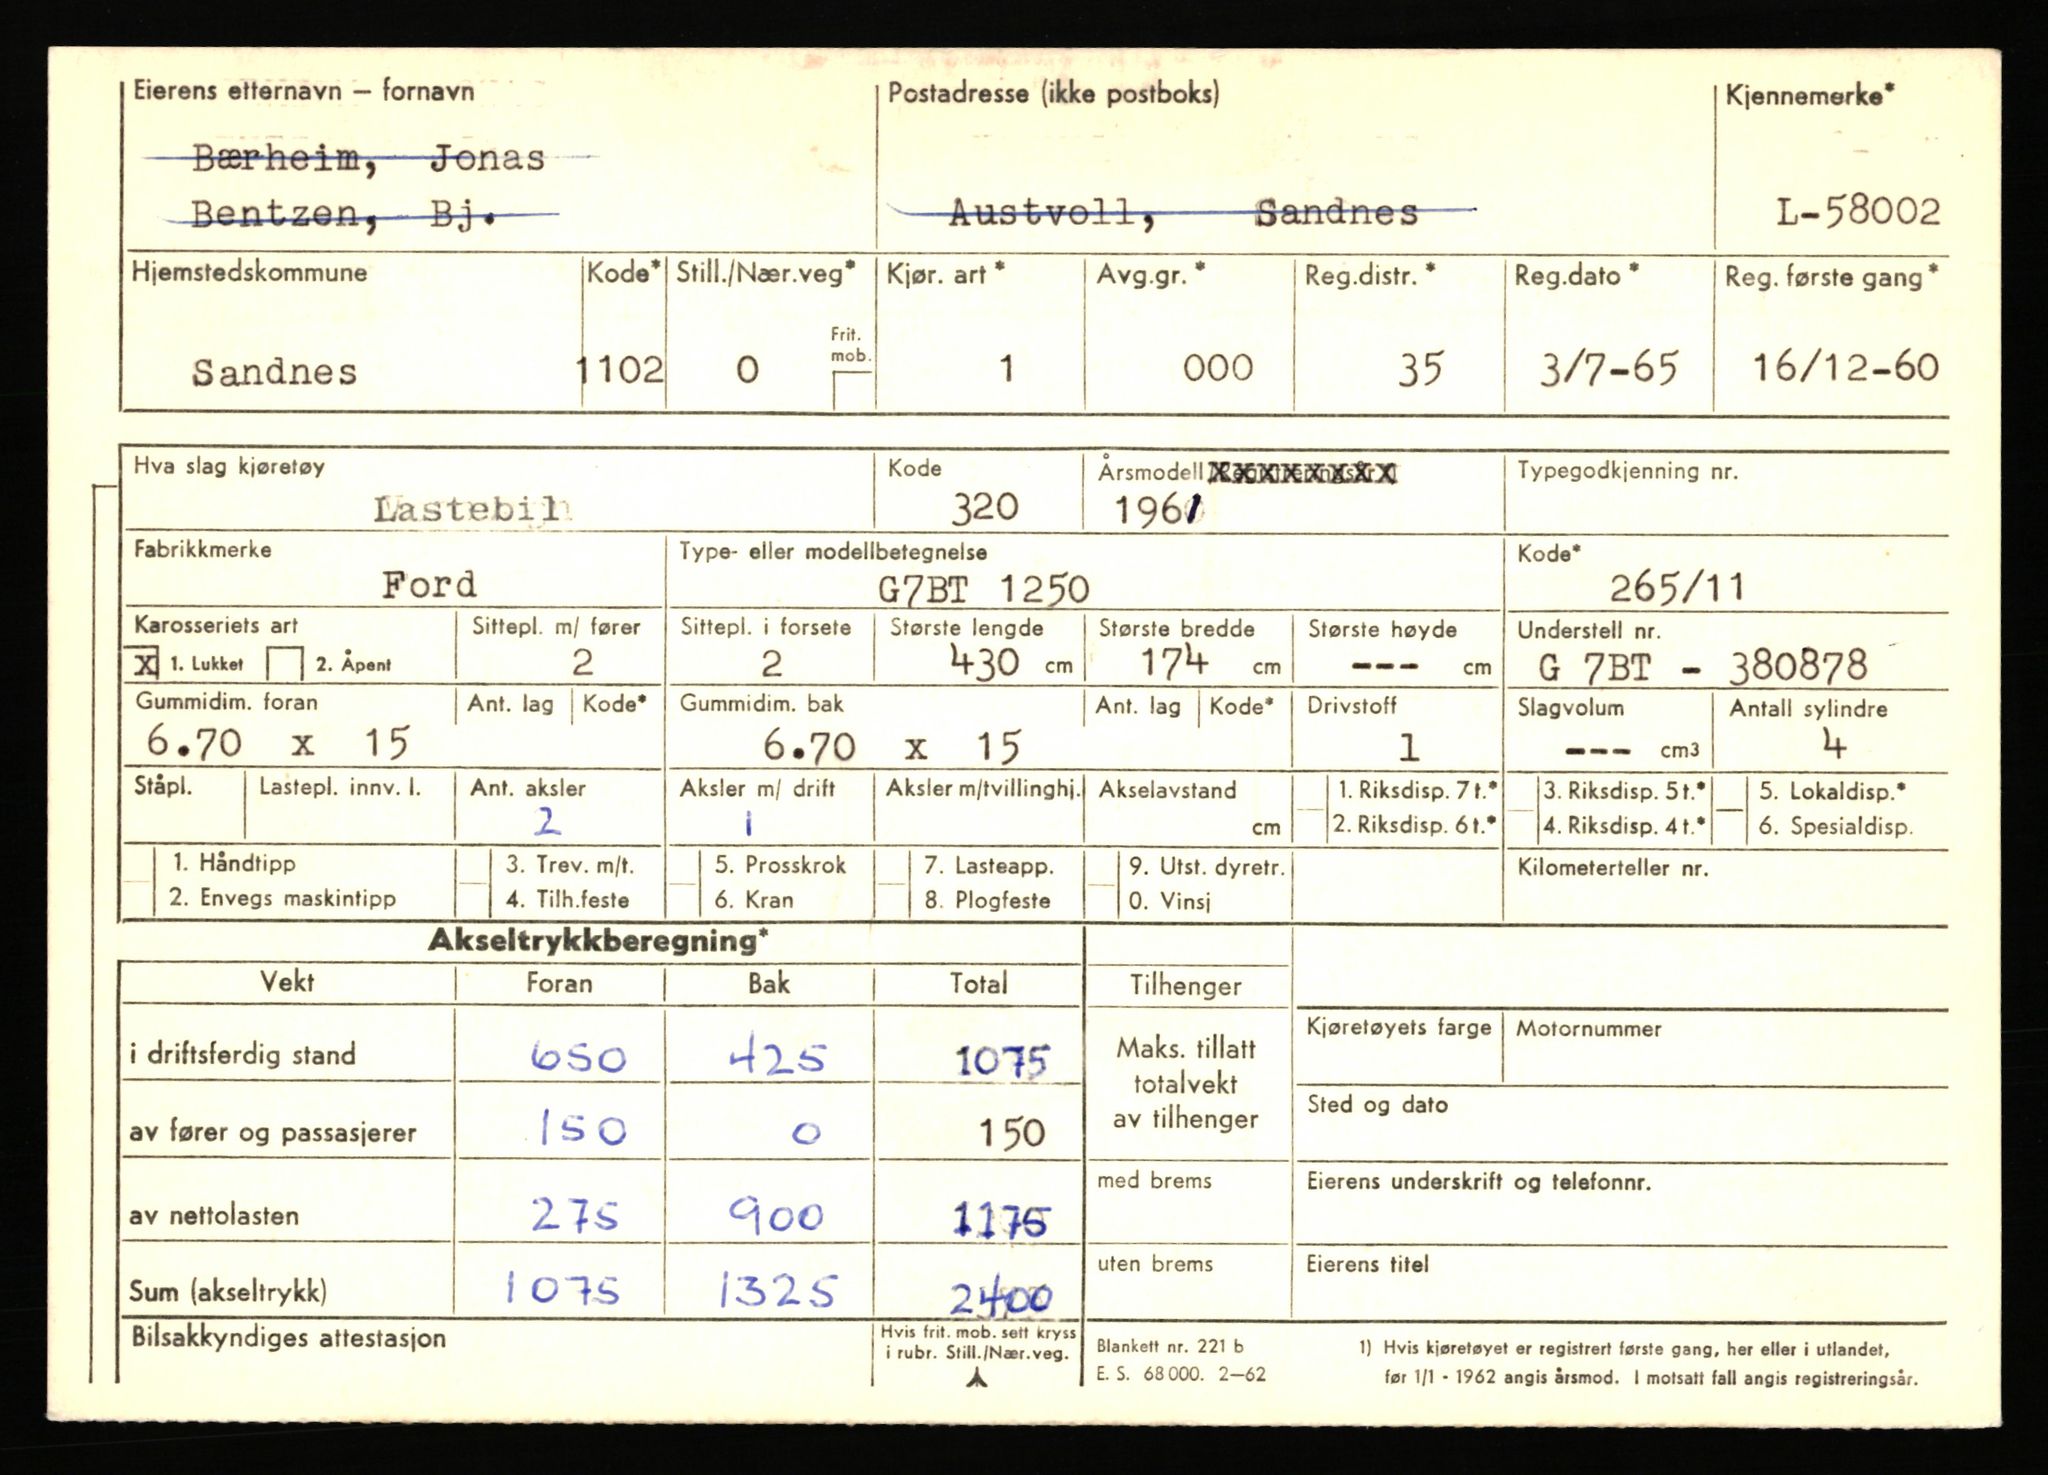 Eierens etternavn – fornavn Postadresse (ikke postboks) Kjennemerke*
Bærheim, Jonas
Bentzen, Bj. Austvoll, Sandnes L-58002
Hjemstedskommune Kode* Still./Nær.veg* Kjør. art* Avg.gr.* Reg.distr.* Reg.dato* Reg. første gang*
Frit. mob.
Sandnes 1102 0 1 000 35 3/7-65 16/12-60
Hva slag kjøretøy Kode Årsmodell Typegodkjenning nr.
Lastebil 320 1961
Fabrikkmerke Type- eller modellbetegnelse Kode*
Ford G7BT 1250 265/11
Karosseriets art Sittepl. m/ fører Sittepl. i forsete Største lengde Største bredde Største høyde Understell nr.
X 1. Lukket 2. Åpent 2 2 430 cm 174 cm --- cm G 7BT - 380878
Gummidim. foran Ant. lag Kode* Gummidim. bak Ant. lag Kode* Drivstoff Slagvolum Antall sylindre
6.70 x 15 6.70 x 15 1 --- cm3 4
Ståpl. Lastepl. innv. l. Ant. aksler Aksler m/ drift Aksler m/tvillinghj. Akselavstand 1. Riksdisp. 7 t.* 3. Riksdisp. 5 t.* 5. Lokaldisp.*
2 1 cm 2. Riksdisp. 6 t.* 4. Riksdisp. 4 t.* 6. Spesialdisp.
1. Håndtipp 3. Trev. m/t. 5. Prosskrok 7. Lasteapp. 9. Utst. dyretr. Kilometerteller nr.
2. Envegs maskintipp 4. Tilh.feste 6. Kran 8. Plogfeste 0. Vinsj
Akseltrykkberegning*
Vekt Foran Bak Total Tilhenger
Kjøretøyets farge Motornummer
i driftsferdig stand 650 425 1075 Maks. tillatt
totalvekt
Sted og dato
av fører og passasjerer 150 0 150 av tilhenger
med brems Eierens underskrift og telefonnr.
av nettolasten 275 900 1175
uten brems Eierens titel
Sum (akseltrykk) 1075 1325 2400
Bilsakkyndiges attestasjon Hvis frit. mob. sett kryss
i rubr. Still./Nær.veg.
Blankett nr. 221 b 1) Hvis kjøretøyet er registrert første gang, her eller i utlandet,
E. S. 68 000. 2–62 før 1/1 - 1962 angis årsmod. I motsatt fall angis registreringsår.